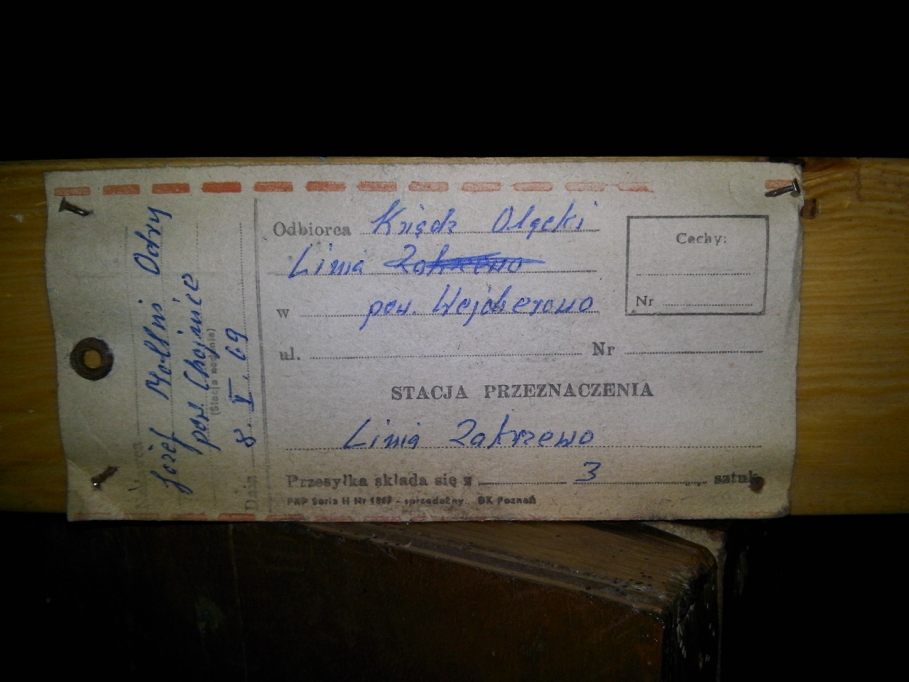 Józef Mollini Odry
pow. Chojnice
(Stacja nadania)
8. V. 69
Odbiorca Ksiądz Olęcki
Linia Zakrzewo
w pow. Wejcherowo
ul. Nr
Cechy:
Nr
STACJA PRZEZNACZENIA
Linia Zakrzewo
Przesyłka składa się z 3 sztuk
PKP Seria H Nr - sprzedażny DK Poznań